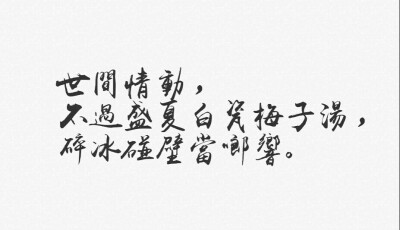 世間情動，
不過盛夏白瓷梅子湯，
碎冰碰壁當啷響。